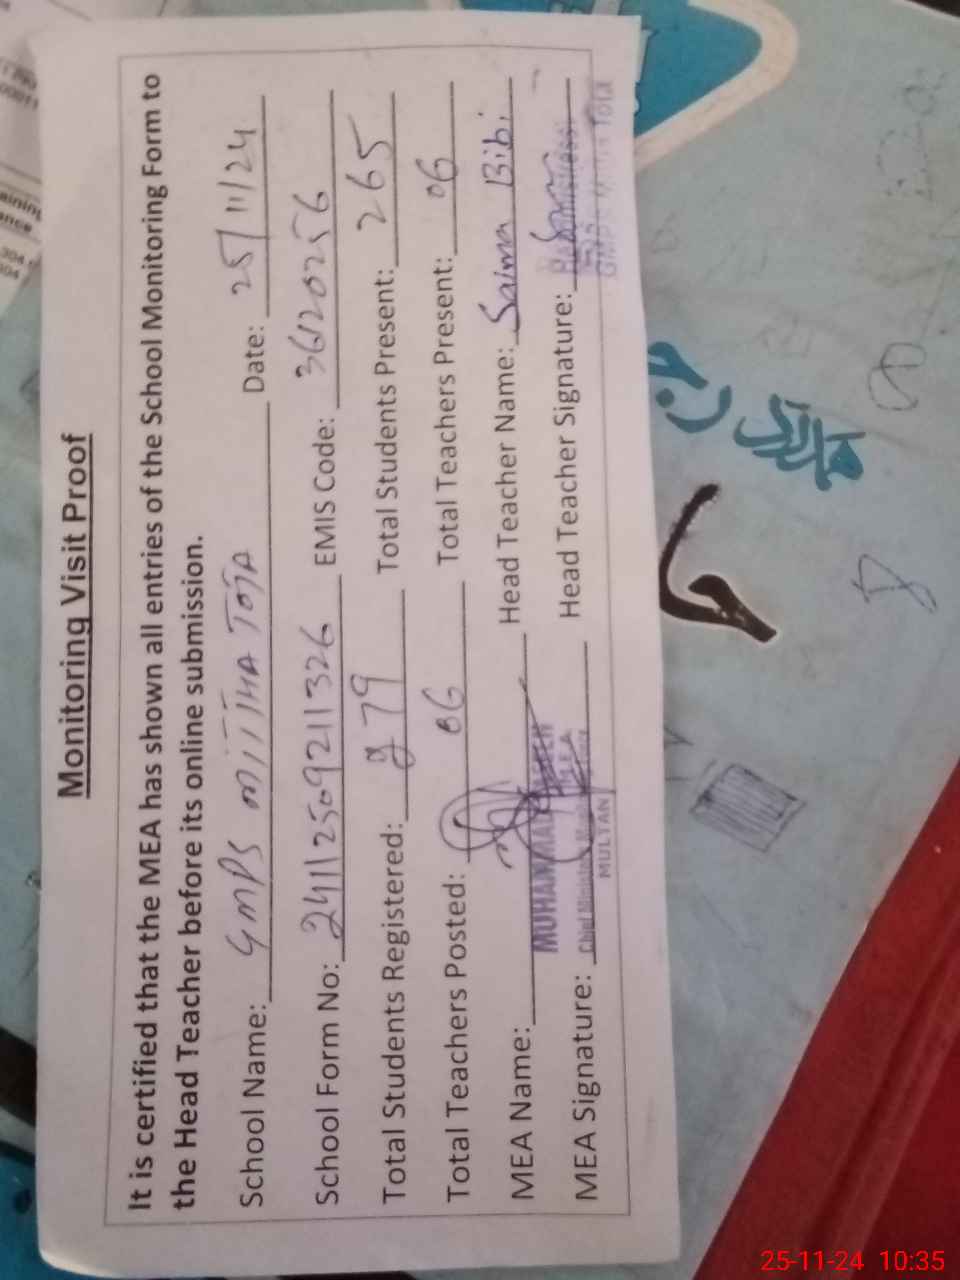 Monitoring Visit Proof
It is certified that the MEA has shown all entries of the School Monitoring Form to
the Head Teacher before its online submission.
School Name: GMPS MITTHA TOTA Date: 25/11/24
School Form No: 24112509211326 EMIS Code: 36120256
Total Students Registered: 279 Total Students Present: 265
Total Teachers Posted: 06 Total Teachers Present: 06
MEA Name: MUHAMMAD Head Teacher Name: Salma Bibi
MEA Signature: Chief Minister's Head Teacher Signature:
MULTAN
25-11-24 10:35